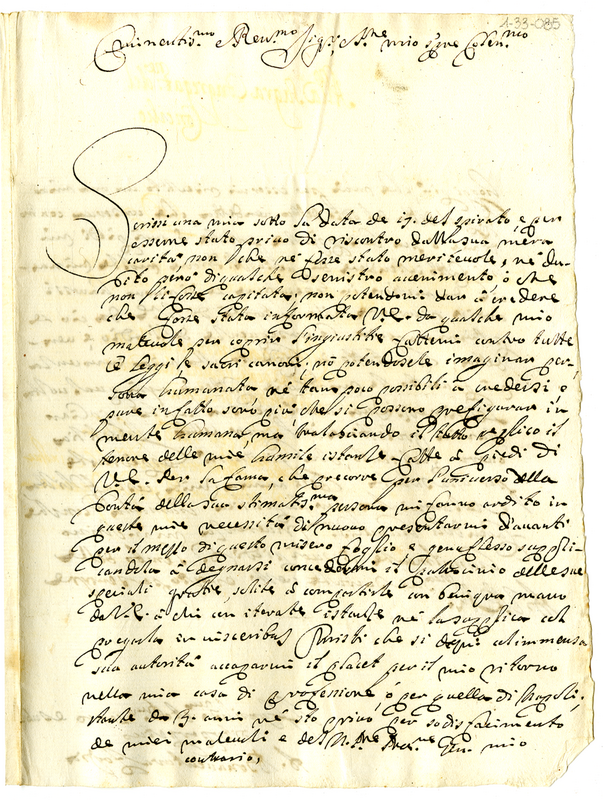 1-33-085
Eminentis.mo e Reu.mo Sig.r, mio Sig.re Colen.mo
Scrissi una mia sotto la data de 19. del spirato, e per
esserne stato privo di riscontro dalla sua mera
carità non che ne fosse stato meritevole, ne du-
bito però di qualche sinistro avenimento ò che
non li fosse capitata, non potendomi dar à credere
che fosse stata informata V.E. da qualche mio
malevole per coprir l'ingiustitie fattemi contro tutte
le leggi, e sacri canoni, nõ potendosele imaginar per-
sona humanata nè tan poco possibili à credersi e
pure in fatto sono più che si possono prefigurar in
mente humana, mà tralasciando il tutto replico il
tenore delle mie humile istanze fatte à piedi di
V.E. Per la fama, che precorre per l'universo della
bontà della sua stimatis.ma persona mi fanno ardito in
queste mie necessità di nuovo presentarmi d'avanti
per il mezzo di questo misero foglio e genuflesso suppli-
candola à degnarsi concedermi il patrocinio delle sue
speciali gratie solite à compartirle con benigna mano
da V.E. à chi con iterate istanze ne la supplica col
pregarla in visceribus Christi che si degni coll'immensa
sua autorità accaparmi il placet per il mio ritorno
nella mia casa di professione, ò per quella di Napoli,
stante da 3. anni ne stò privo, per sodisfacimento
de miei malevoli e del N. Gen. mio
contrario,